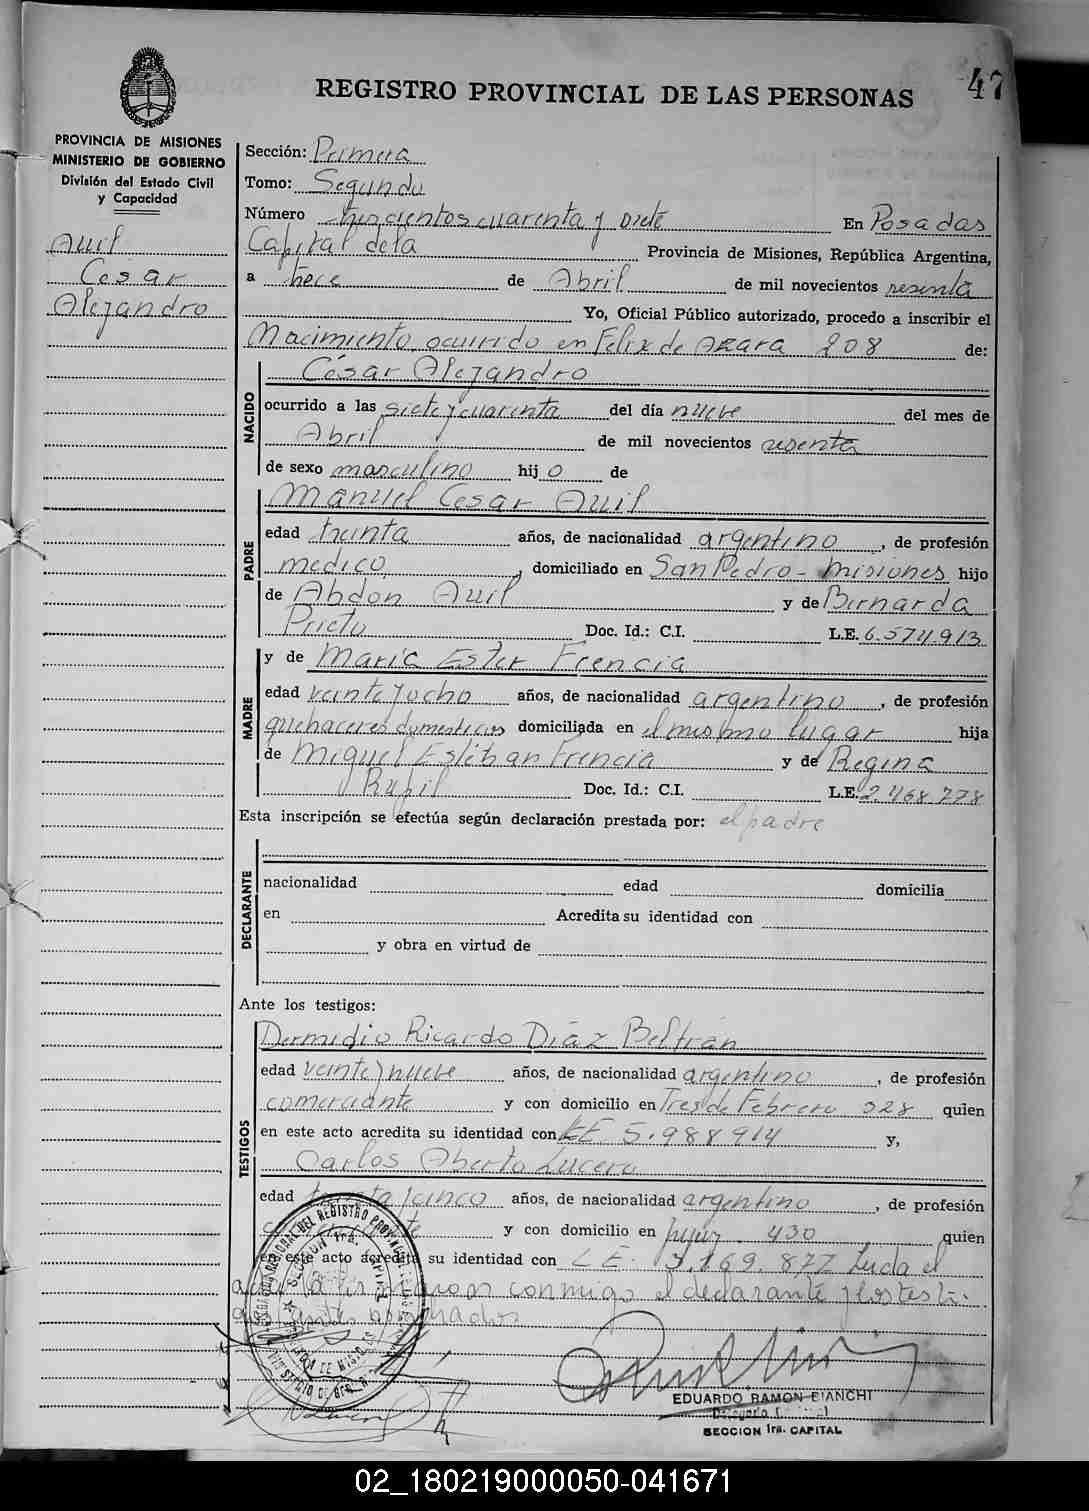 47
REGISTRO PROVINCIAL DE LAS PERSONAS
PROVINCIA DE MISIONES
MINISTERIO DE GOBIERNO
División del Estado Civil
y Capacidad
Auil
Cesar
Alejandro
Sección: Primera
Tomo: Segundo
Número trescientos cuarenta y siete En Posadas
Capital de la Provincia de Misiones, República Argentina,
a trece de Abril de mil novecientos sesenta
Yo, Oficial Público autorizado, procedo a inscribir el
Nacimiento ocurrido en Felix de Azara 208 de:
NACIDO
César Alejandro
ocurrido a las siete y cuarenta del día nueve del mes de
Abril de mil novecientos sesenta
de sexo masculino hijo de
PADRE
Manuel Cesar Auil
edad treinta años, de nacionalidad argentino, de profesión
medico, domiciliado en San Pedro - Misiones hijo
de Abdon Auil y de Bernarda
Prieto Doc. Id.: C.I. L.E. 6.574.913
MADRE
y de María Ester Frencia
edad veinte y ocho años, de nacionalidad argentino, de profesión
quehaceres domesticos domiciliada en el mismo lugar hija
de Miguel Esteban Frencia y de Regina
Doc. Id.: C.I. L.E. 2.468.778
Esta inscripción se efectúa según declaración prestada por: el padre
DECLARANTE
nacionalidad edad domicilia
en Acredita su identidad con
y obra en virtud de
Ante los testigos:
TESTIGOS
Dermidio Ricardo Díaz Beltrán
edad veinte y nueve años, de nacionalidad argentino, de profesión
comerciante y con domicilio en Tres de Febrero 328 quien
en este acto acredita su identidad con LE 5.988.914 y,
Carlos Alberto Lucero
edad treinta y cinco años, de nacionalidad argentino, de profesión
y con domicilio en Jujuy 430 quien
en este acto acredita su identidad con LE. 3.169.877 Leida el
acta la firmaron conmigo el declarante y los testi-
EDUARDO RAMON BIANCHI
SECCION 1ra. CAPITAL
02_180219000050-041671